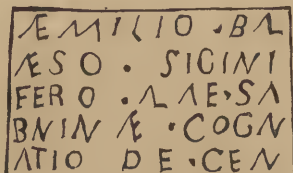 ÆMILIO · BA
ÆSO · SICINI
FERO · A AE · SA
BNIN Æ · COGN
ATIO DE · CEN